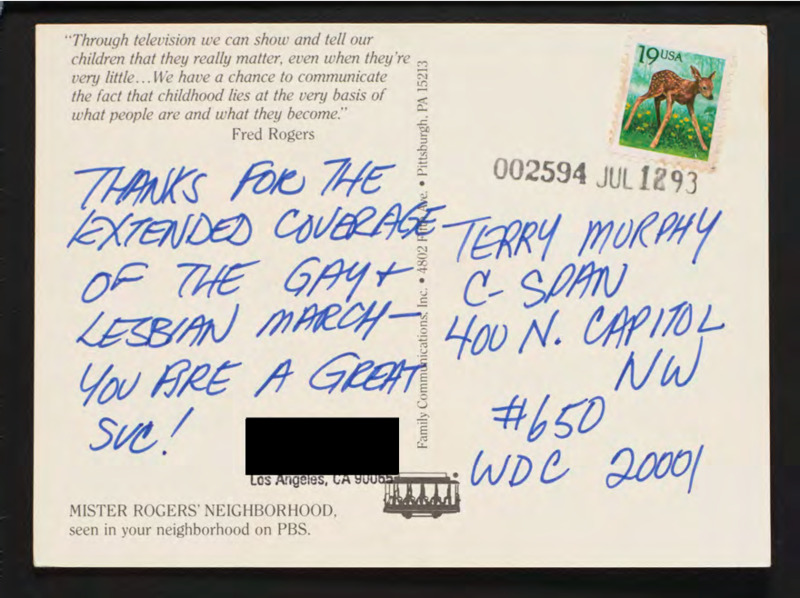 "Through television we can show and tell our
children that they really matter, even when they're
very little...We have a chance to communicate
the fact that childhood lies at the very basis of
what people are and what they become."
Fred Rogers
THANKS FOR THE
EXTENDED COVERAGE
OF THE GAY &
LESBIAN MARCH—
YOU ARE A GREAT
SVC!
Los Angeles, CA 90065
MISTER ROGERS' NEIGHBORHOOD,
seen in your neighborhood on PBS.
Family Communications, Inc. • 4802 Fifth Ave. • Pittsburgh, PA 15213
19USA
002594 JUL 1293
TERRY MURPHY
C-SPAN
400 N. CAPITOL
NW
#650
WDC 20001